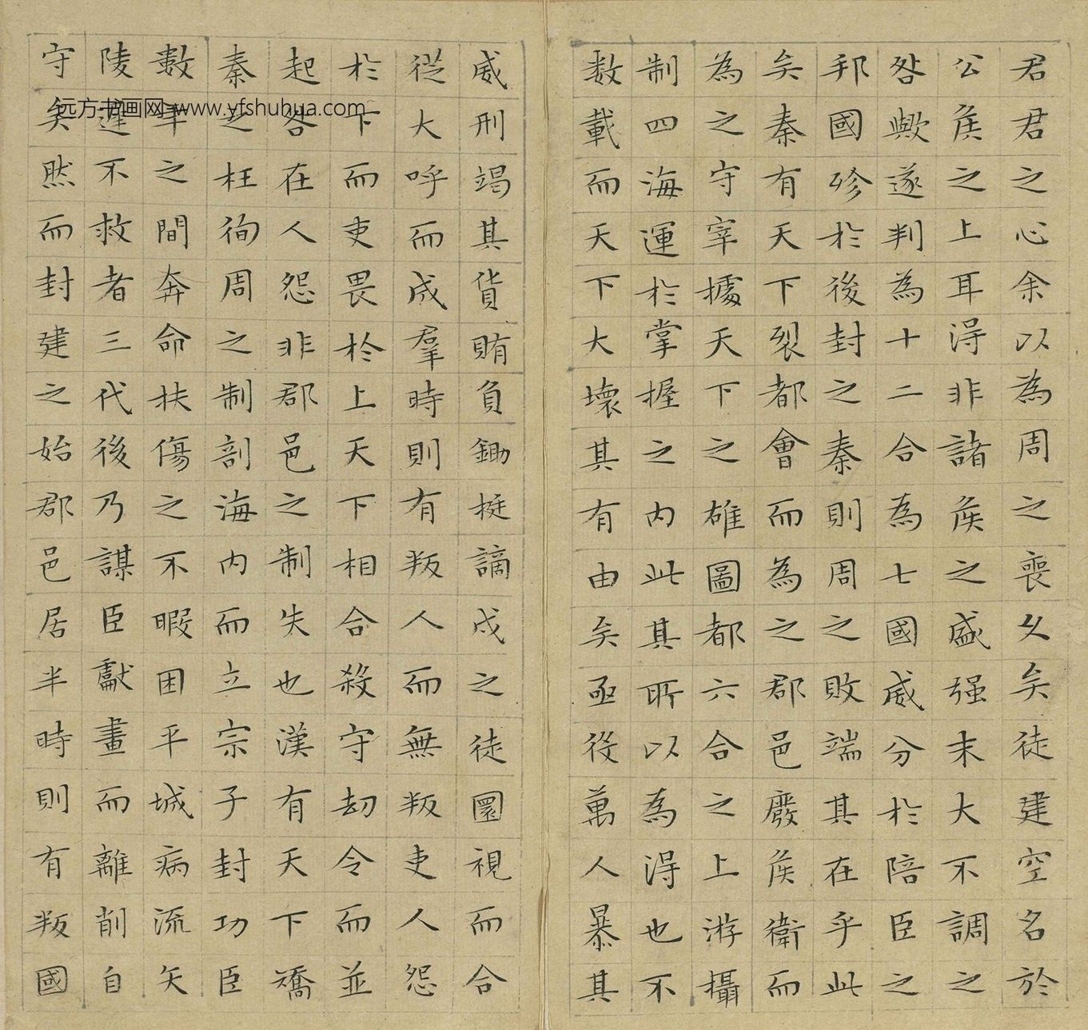 君君之心余以為周之喪久矣徒建空名於
公侯之上耳得非諸侯之盛强末大不調之
咎歟遂判為十二合為七國威分於陪臣之
邦國殄於後封之秦則周之敗端其在乎此
矣秦有天下裂都會而為之郡邑廢侯衛而
為之守宰據天下之雄圖都六合之上游攝
制四海運於掌握之內此其所以為得也不
数載而天下大壞其有由矣亟役萬人暴其
威刑竭其貨賄負鋤挺謫戍之徒圜視而合
從大呼而成羣時則有叛人而無叛吏人怨
於下而吏畏於上天下相合殺守劫令而並
起咎在人怨非郡邑之制失也漢有天下矯
秦之枉徇周之制剖海內而立宗子封功臣
數年之間奔命扶傷之不暇困平城病流矢
陵遲不救者三代後乃謀臣獻畫而離削自
守矣然而封建之始郡邑居半時則有叛國
远方书画网 www.yfshuhua.com